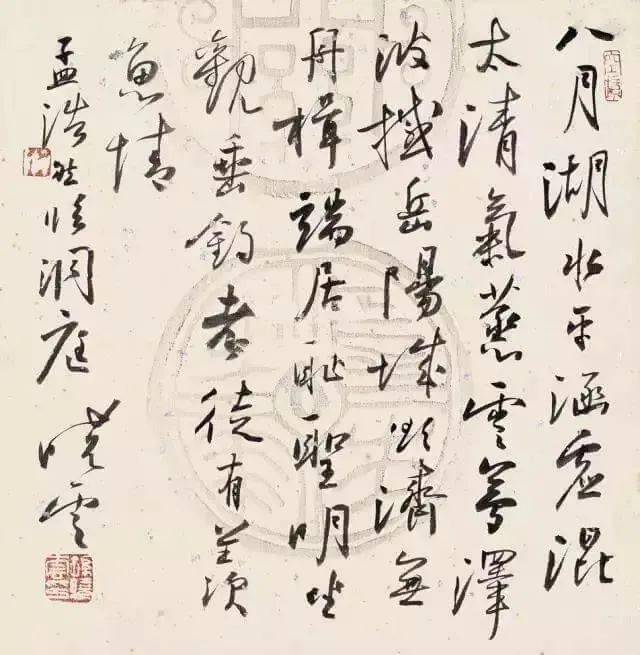 八月湖水平涵虛混
太清氣蒸雲夢澤
波撼岳陽城欲濟無
舟楫端居耻聖明坐
觀垂釣者徒有羡
魚情
孟浩然临洞庭 曉雲